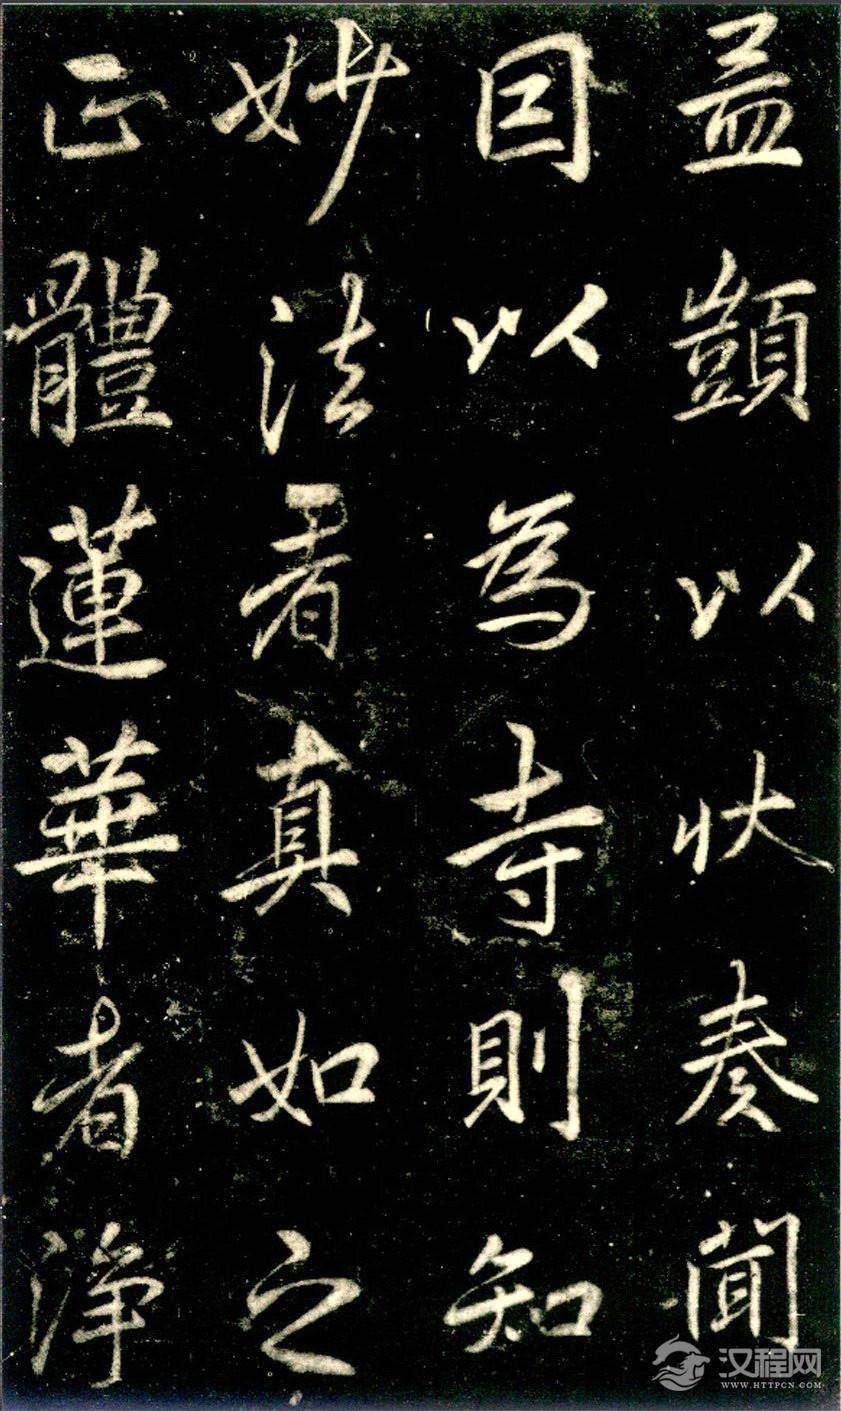 孟顗以狀奏聞
因以為寺則知
妙法者真如之
正體蓮華者淨
汉程网
WWW.HTTPCN.COM